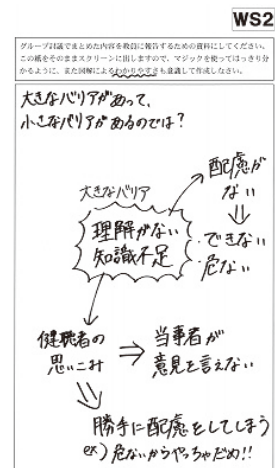 WS2
グループ討議でまとめた内容を教員に報告するための資料にしてください。
この紙をそのままスクリーンに出しますので、マジックを使ってはっきり分
かるように、また図解によるわかりやすさも意識して作成しなさい。
大きなバリアがあって、
小さなバリアがあるのでは?
配慮が
ない
⇓
・できない
・危ない
大きなバリア
理解がない
知識不足
健聴者の
思いこみ
⇒
当事者が
意見を言えない
勝手に配慮をしてしまう
ex) 危ないからやっちゃだめ!!